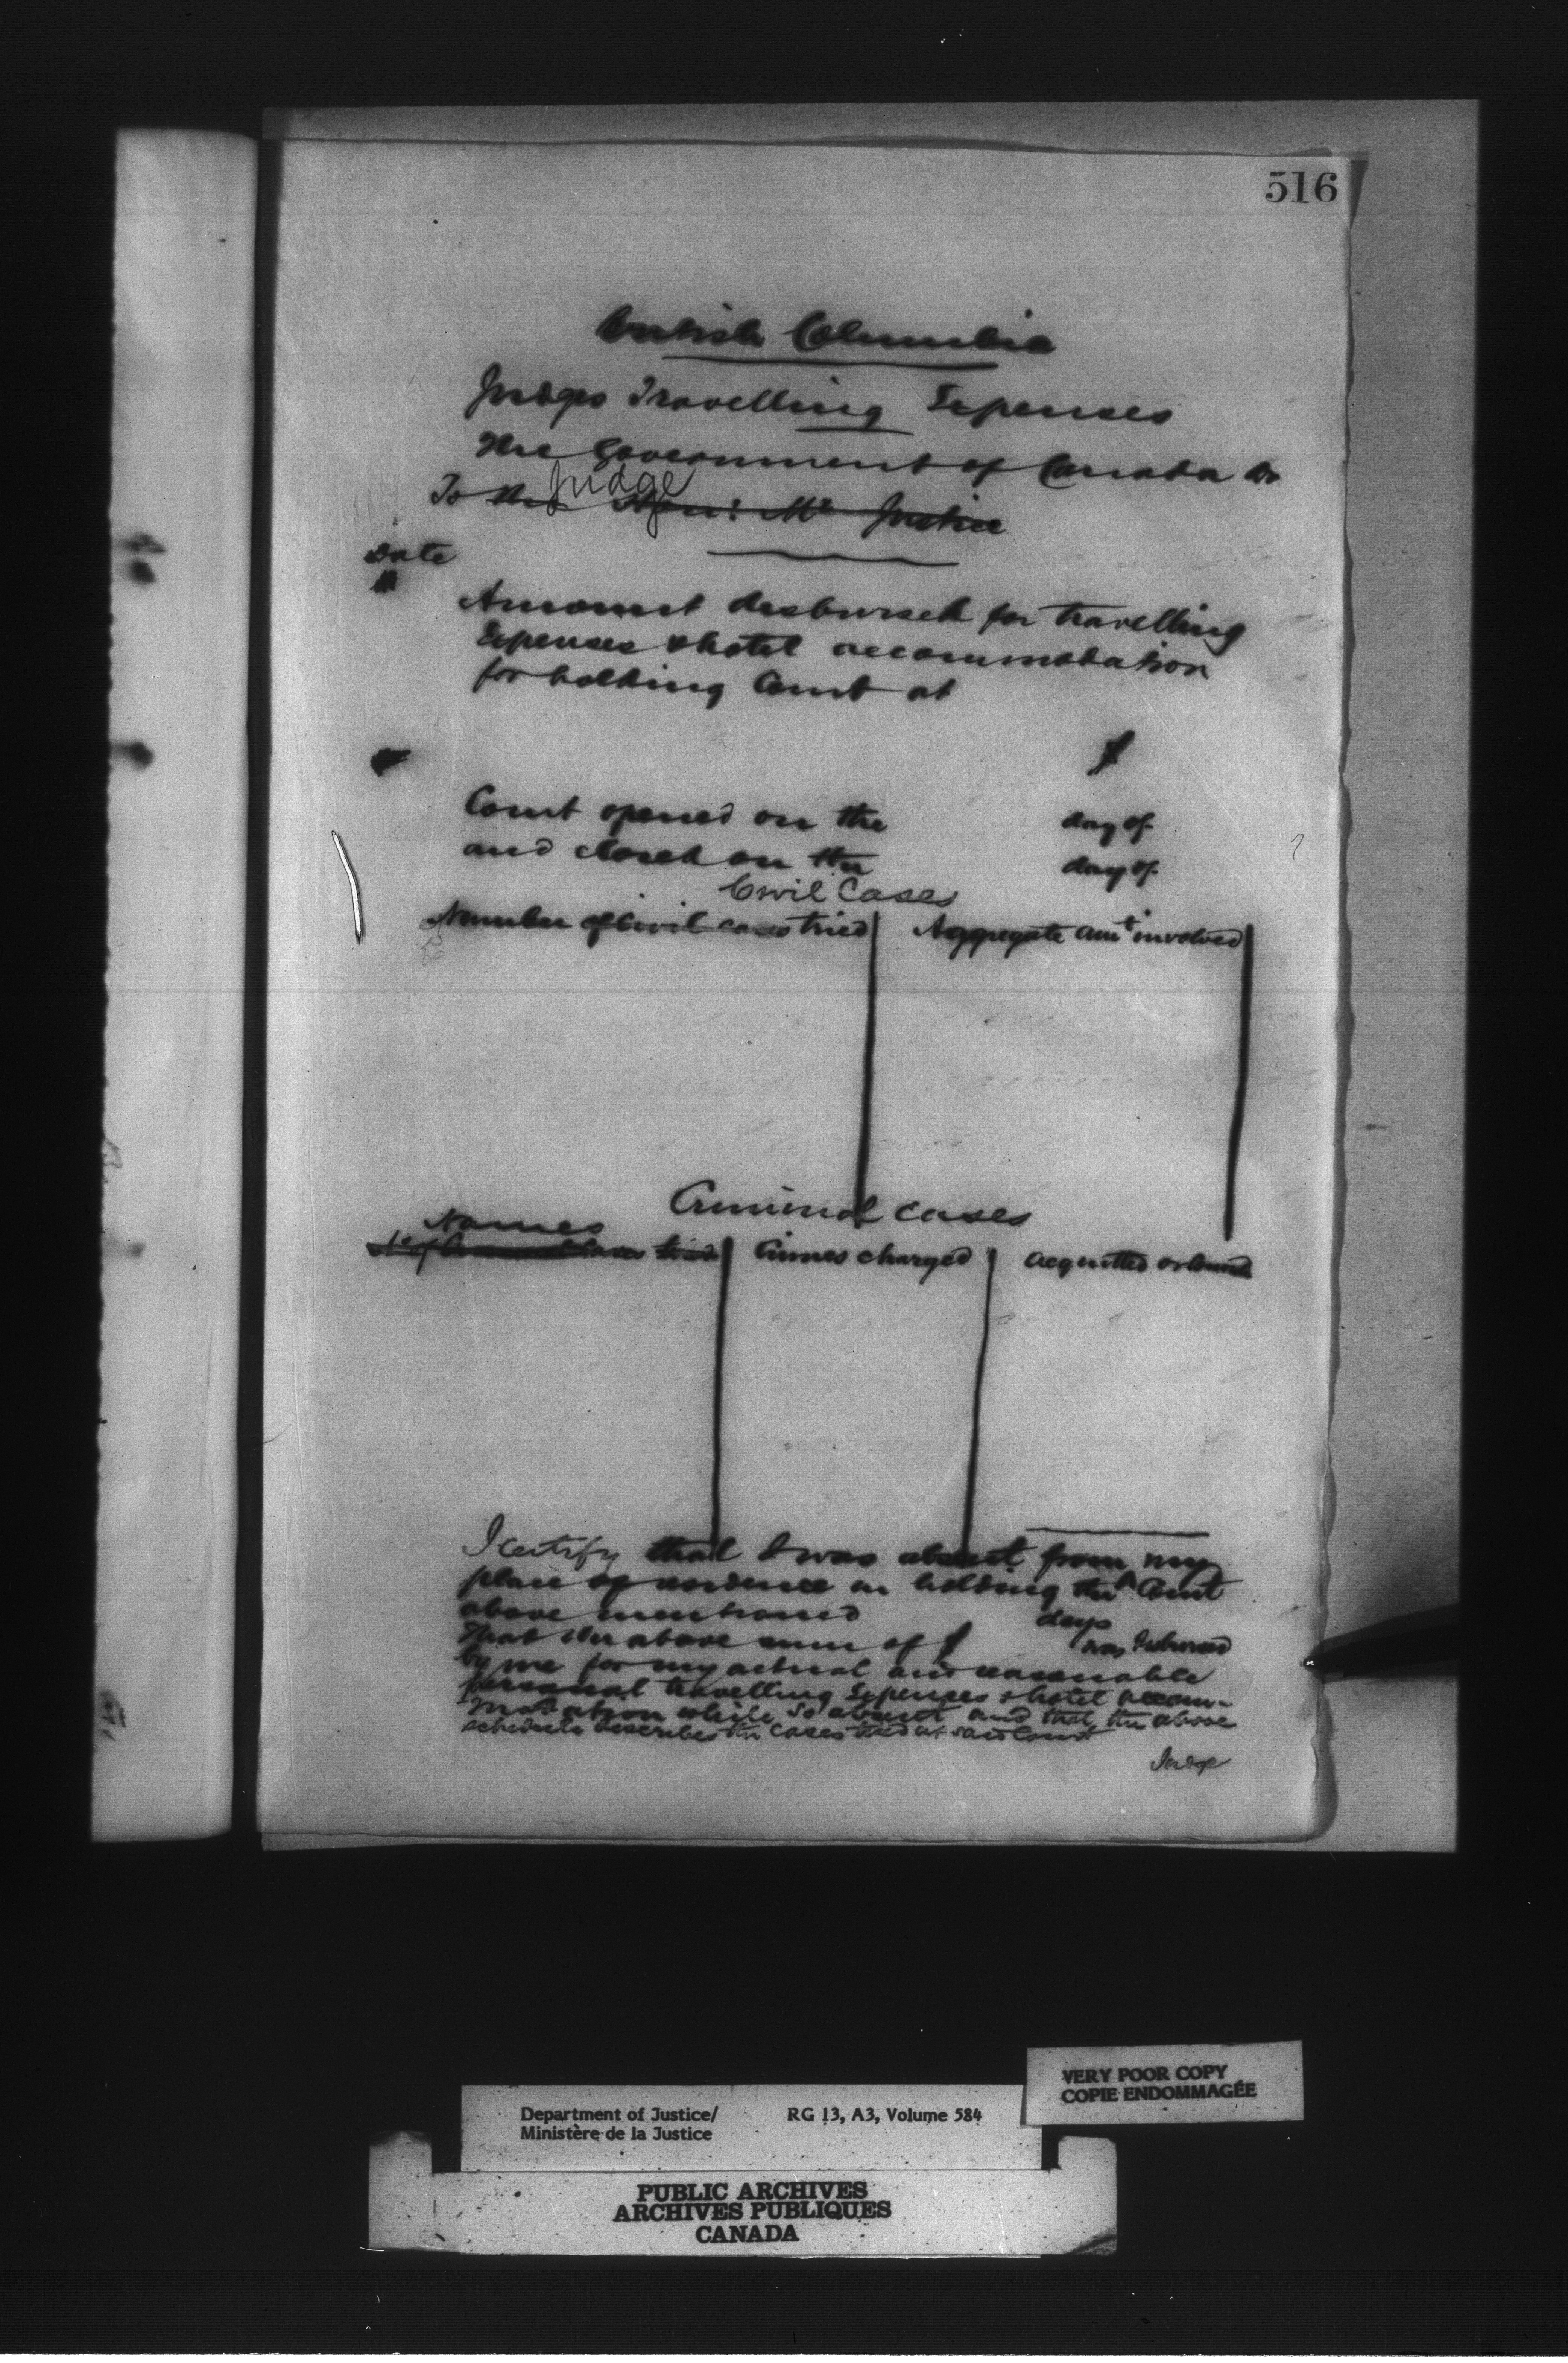 516
British Columbia
Judges Travelling Expenses
The Government of Canada Dr
To the Judge Hon: Mr Justice
Date
Amount disbursed for travelling
Expenses & hotel accommodation
for holding Court at
$
Court opened on the day of
and closed on the day of
Civil Cases
Number of Civil cases tried Aggregate amt involved
Criminal cases
Names
No of Criminal Cases tried Crimes charged acquitted or
I certify that I was absent from my
place of residence in holding the Court
above mentioned days
that the above sum of $ was disbursed
by me for my actual and reasonable
personal travelling Expenses & hotel accom-
modation while so absent and that the above
schedule describes the cases tried at said Court
Judge
VERY POOR COPY
COPIE ENDOMMAGÉE
Department of Justice/ RG 13, A3, Volume 584
Ministère de la Justice
PUBLIC ARCHIVES
ARCHIVES PUBLIQUES
CANADA